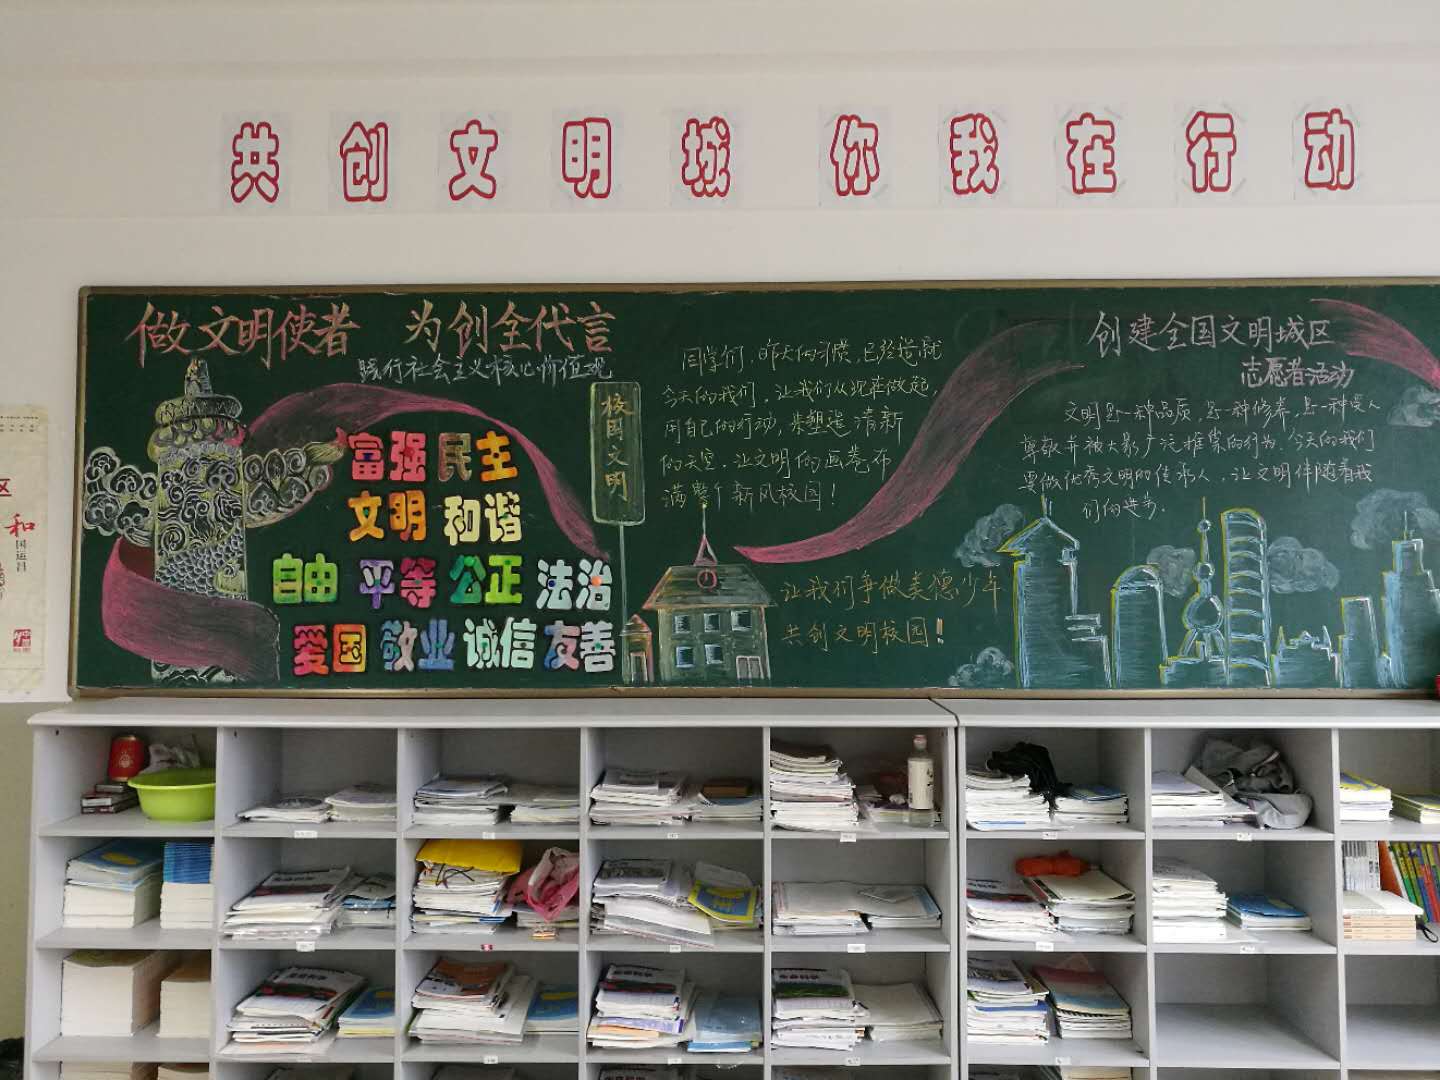 共创文明城 你我在行动
做文明使者 为创全代言
践行社会主义核心价值观
富强 民主
文明 和谐
自由 平等 公正 法治
爱国 敬业 诚信 友善
校园文明
同学们，昨天的习惯，已经造就
今天的我们，让我们从现在做起，
用自己的行动，来塑造清新
的天空，让文明的画卷布
满整个新风校园！
让我们争做美德少年
共创文明校园！
创建全国文明城区
志愿者活动
文明是一种品质，是一种修养，是一种受人
尊敬并被大家广泛推崇的行为。今天的我们
要做优秀文明的传承人，让文明伴随着我
们的进步。
区
和
国运昌